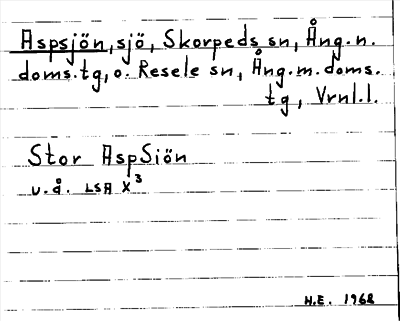 Aspsjön, sjö, Skorpeds sn, Ång.n.
doms.tg, o. Resele sn, Ång.m.doms.
tg, Vrnl.l.
Stor AspSiön
u.å. LSA X³
H.E. 1968